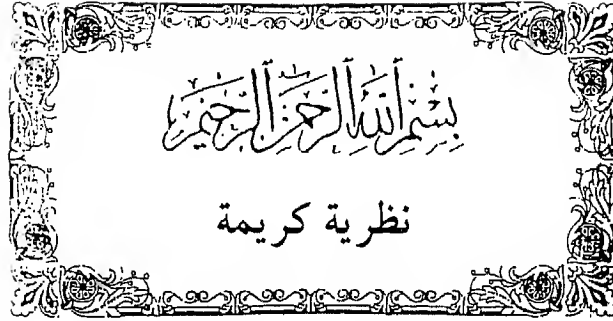 بسم الله الرحمن الرحيم
نظرية كريمة